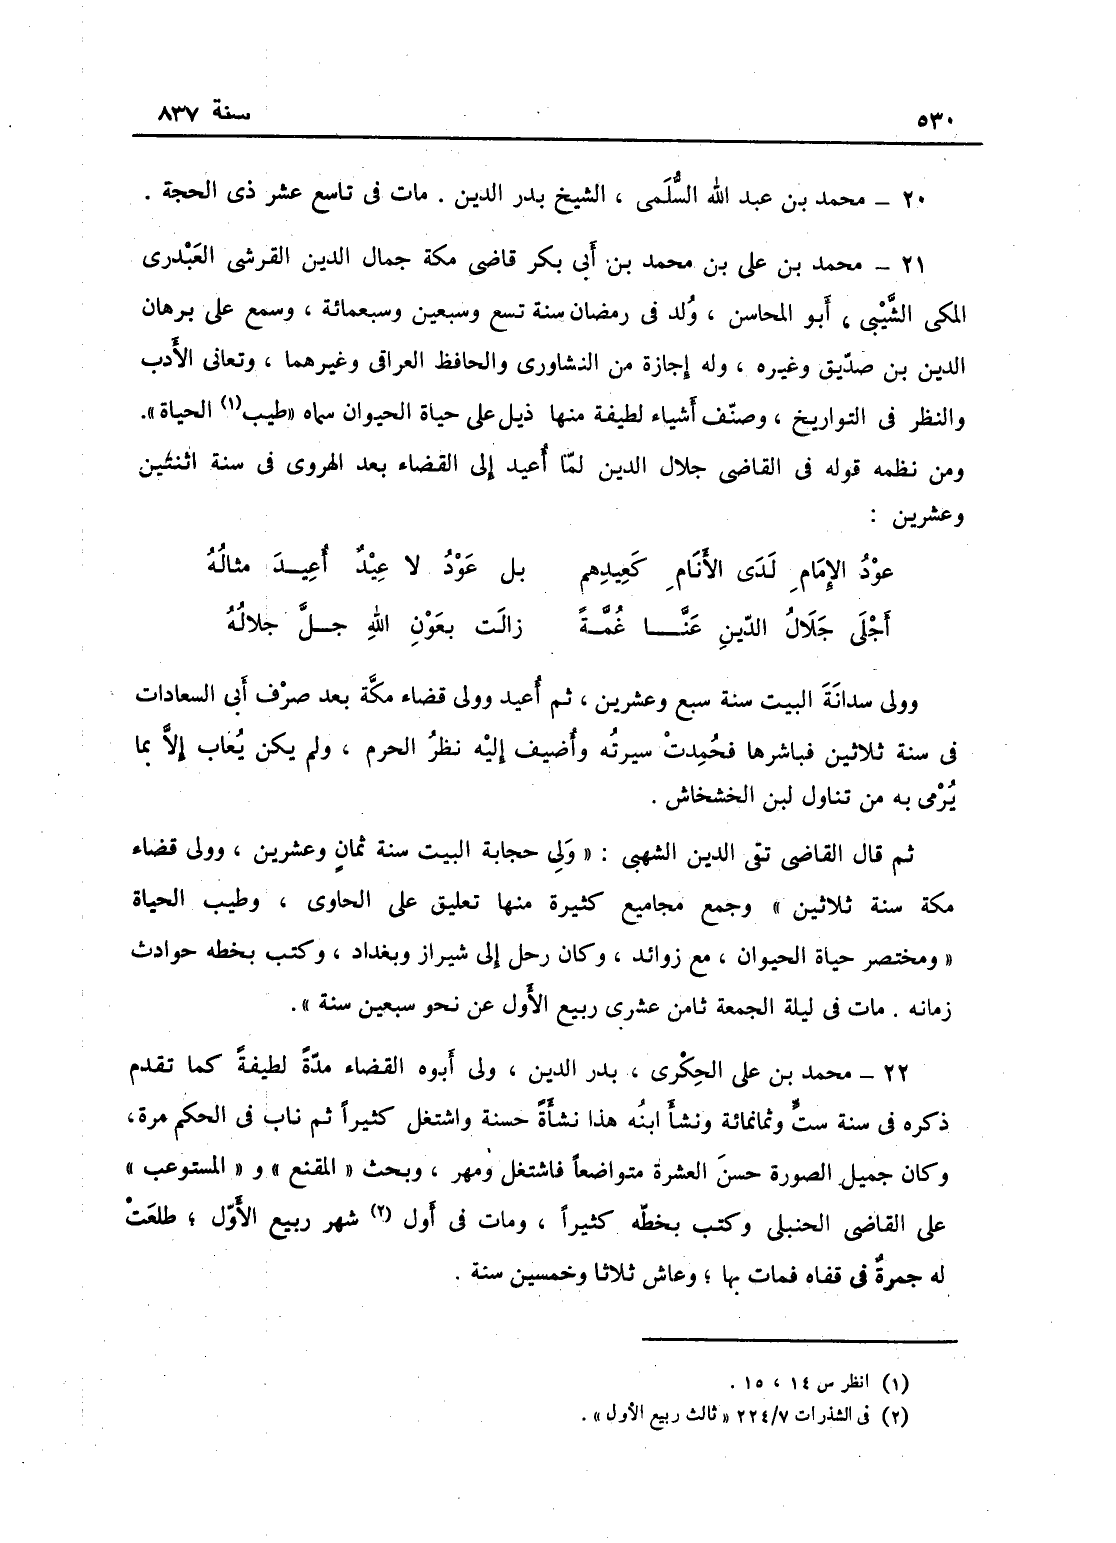 ٥٣٠ سنة ٨٣٧
٢٠ ــ محمد بن عبد الله السُّلَمى ، الشيخ بدر الدين . مات فى تاسع عشر ذى الحجة .
٢١ ــ محمد بن على بن محمد بن أَبى بكر قاضى مكة جمال الدين القرشى العَبْدرى
المكى الشَّيْبى ، أَبو المحاسن ، وُلد فى رمضان سنة تسع وسبعين وسبعمائة ، وسمع على برهان
الدين بن صدّيق وغيره ، وله إجازة من النشاورى والحافظ العراقى وغيرهما ، وتعانى الأَدب
والنظر فى التواريخ ، وصنّف أَشياء لطيفة منها ذيل على حياة الحيوان سماه «طيب(١) الحياة».
ومن نظمه قوله فى القاضى جلال الدين لمّا أُعيد إلى القضاء بعد الهروى فى سنة اثنتين
وعشرين :
عوْدُ الإِمَامِ لَدَى الأَنَامِ كَعِيدِهم بل عَوْدُ لا عِيْدٌ أُعِيــدَ مثالُهُ
أَجْلَى جَلَالُ الدّينِ عَنَّـــا غُمَّـةً زالَت بعَوْنِ اللهِ جـــلَّ جلالُهُ
وولى سدانَةَ البيت سنة سبع وعشرين ، ثم أُعيد وولى قضاء مكَّة بعد صرْف أَبى السعادات
فى سنة ثلاثين فباشرها فحُمِدتْ سيرتُه وأُضيف إليْه نظرُ الحرم ، ولم يكن يُعاب إلاَّ بما
يُرْمى به من تناول لبن الخشخاش .
ثم قال القاضى تقى الدين الشهبى : « وَلِى حجابة البيت سنة ثمانٍ وعشرين ، وولى قضاء
مكة سنة ثلاثين » وجمع مجاميع كثيرة منها تعليق على الحاوى ، وطيب الحياة
« ومختصر حياة الحيوان ، مع زوائد ، وكان رحل إلى شيراز وبغداد ، وكتب بخطه حوادث
زمانه . مات فى ليلة الجمعة ثامن عشرى ربيع الأَول عن نحو سبعين سنة ».
٢٢ ــ محمد بن على الحِكْرى ، بدر الدين ، ولى أَبوه القضاء مدّةً لطيفةً كما تقدم
ذكره فى سنة ستٍّ وثمانمائة ونشأَ ابنُه هذا نشأَةً حسنة واشتغل كثيراً ثم ناب فى الحكم مرة،
وكان جميل الصورة حسنَ العشرة متواضعاً فاشتغل ومهر ، وبحث « المقنع » و « المستوعب »
على القاضى الحنبلى وكتب بخطّه كثيراً ، ومات فى أَول (٢) شهر ربيع الأَوّل ؛ طلعَتْ
له جمرةٌ فى قفاه فمات بها ؛ وعاش ثلاثا وخمسين سنة .
(١) انظر س ١٤ ، ١٥ .
(٢) فى الشذرات ٢٢٤/٧ « ثالث ربيع الأول ».